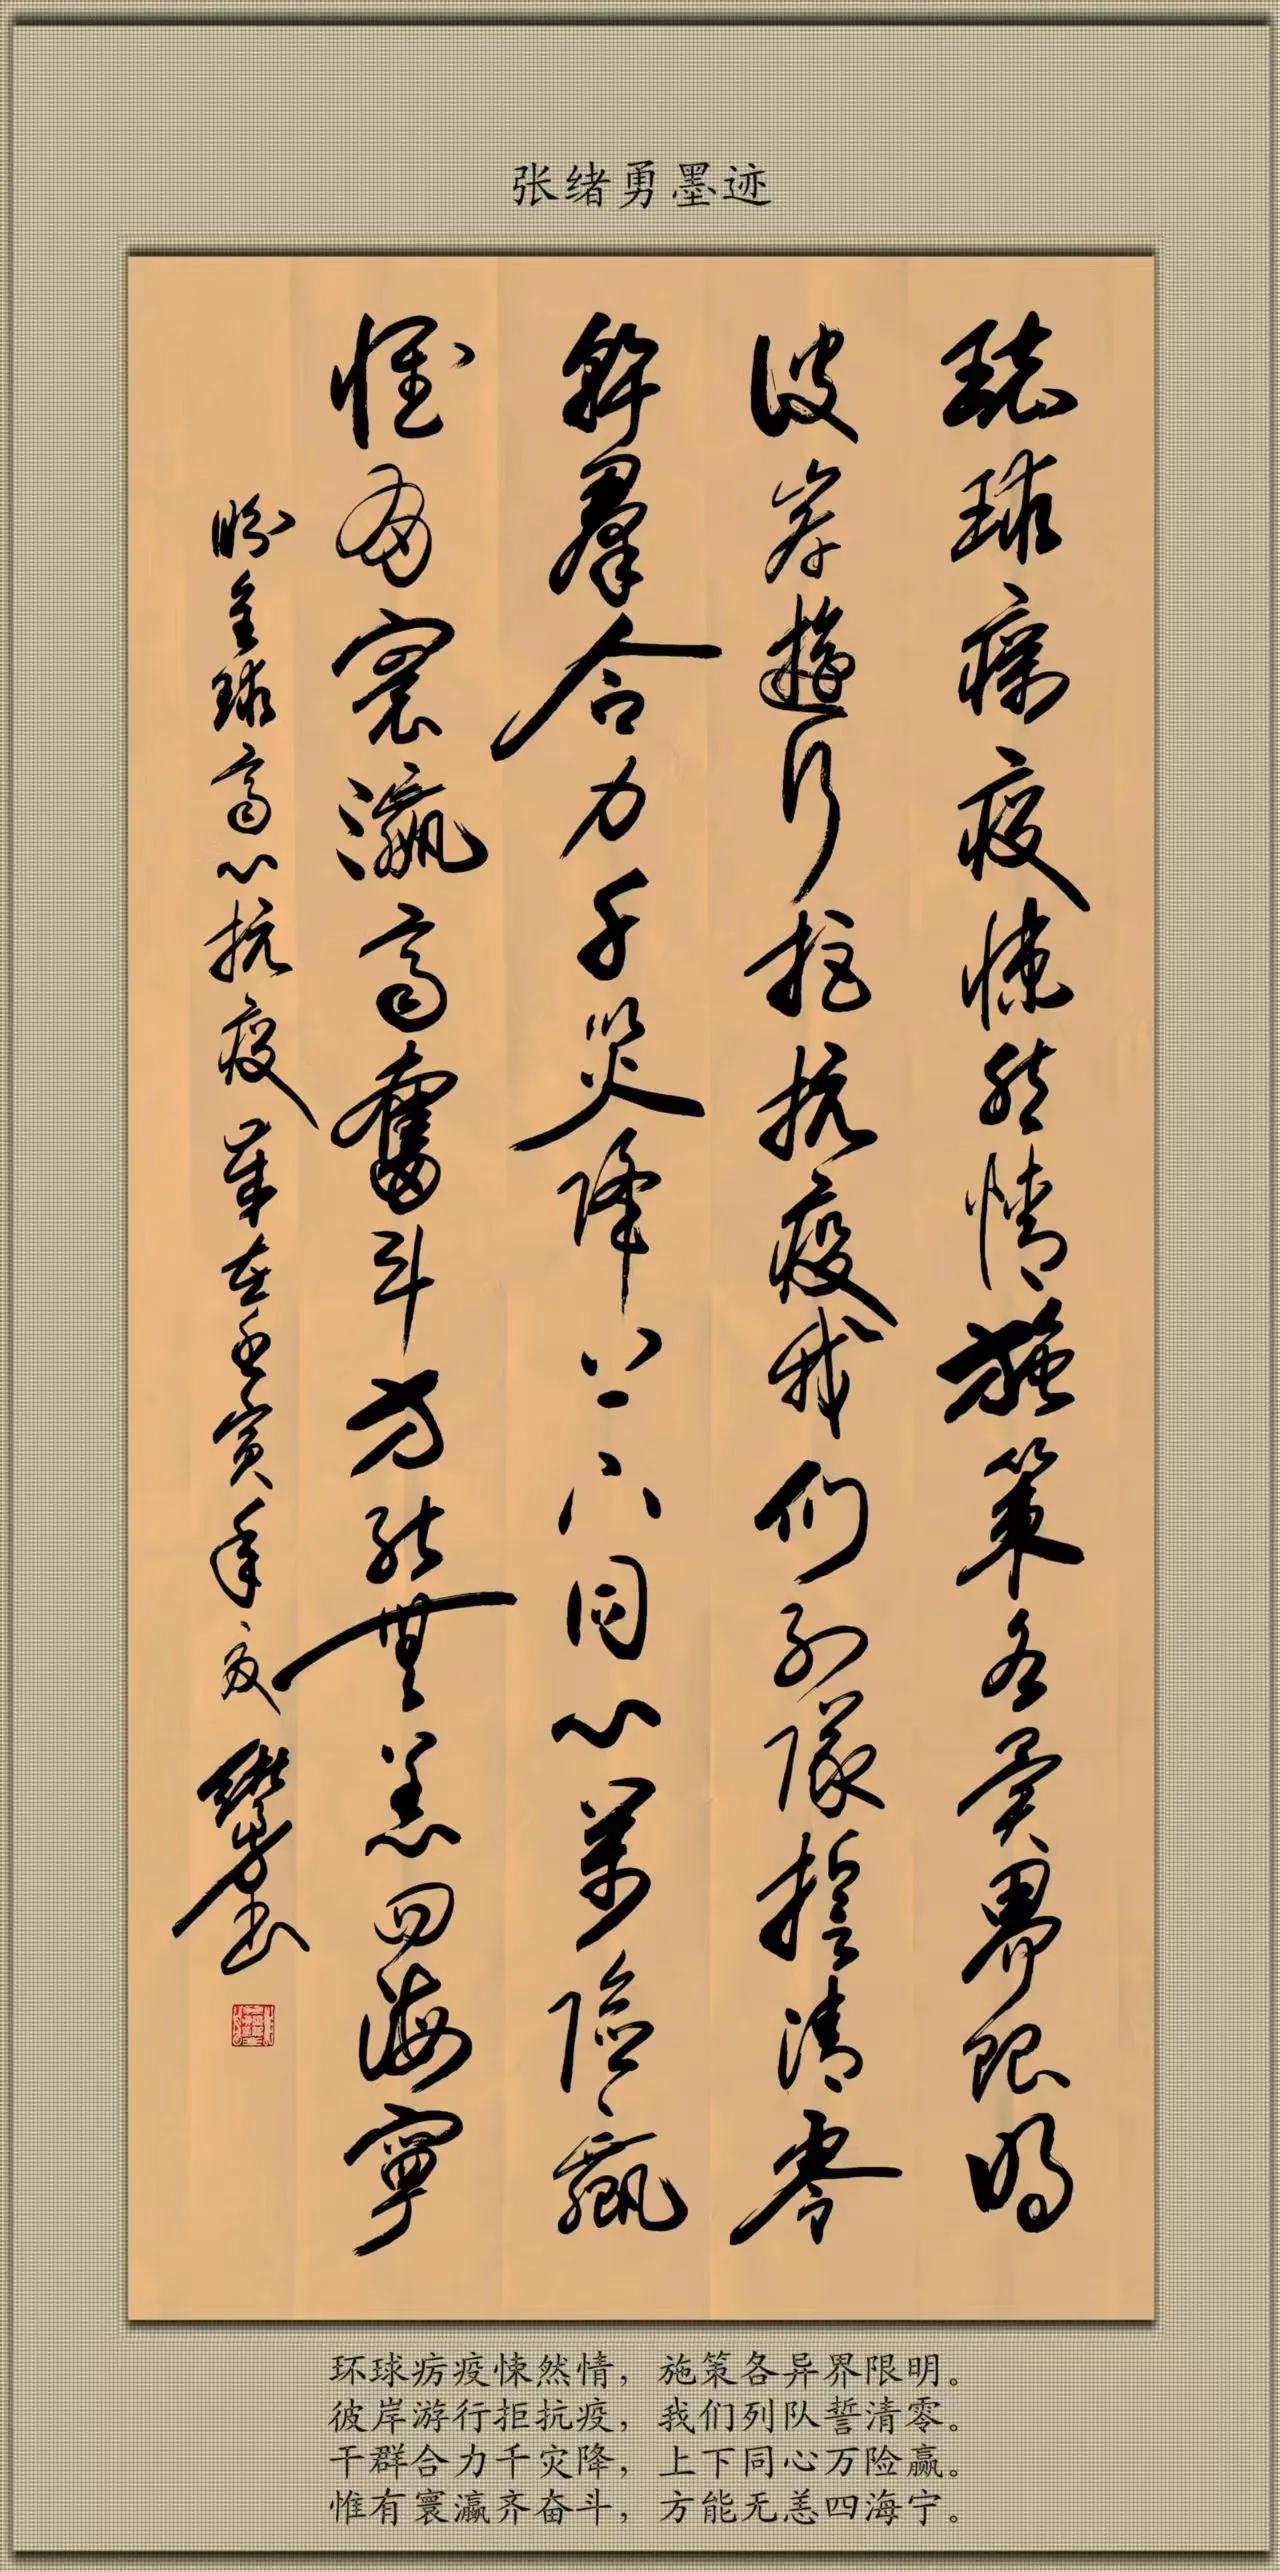 张绪勇墨迹
環球疠疫悚然情施策各異界限明
彼岸遊行拒抗疫我们列隊誓清零
幹羣合力千災降上下同心萬險贏
惟有寰瀛齊奮斗方能無恙四海寧
盼全球齊心抗疫 草在壬寅年夏 緒勇书
环球疠疫悚然情，施策各异界限明。
彼岸游行拒抗疫，我们列队誓清零。
干群合力千灾降，上下同心万险赢。
惟有寰瀛齐奋斗，方能无恙四海宁。